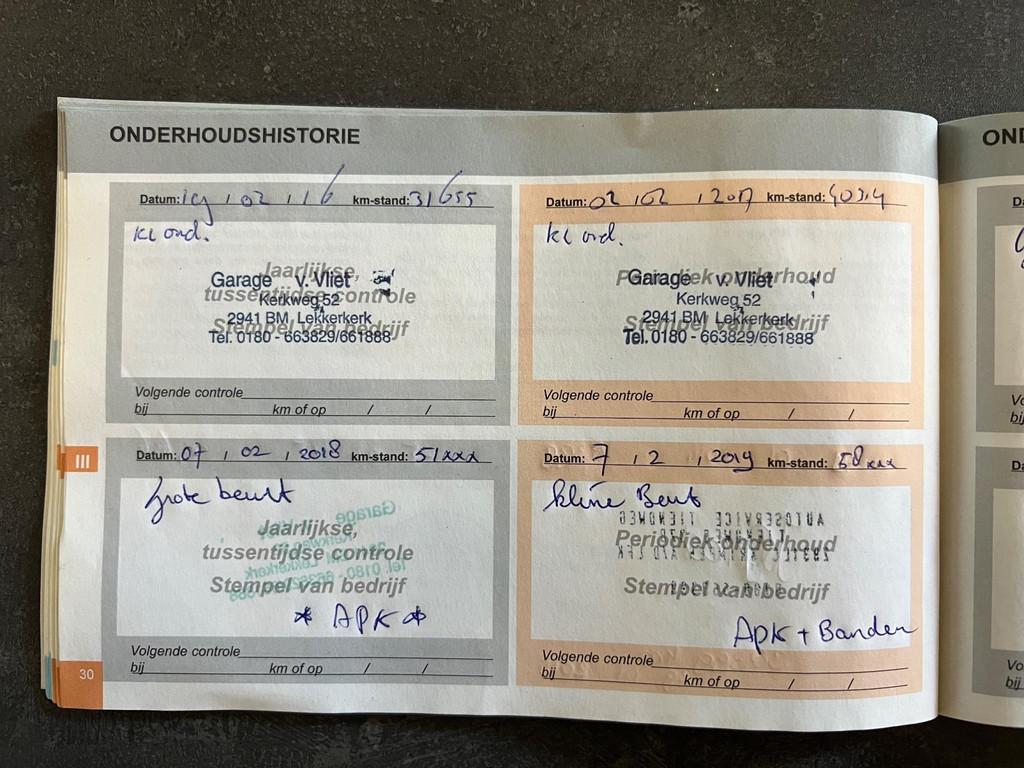 ONDERHOUDSHISTORIE
Datum: 19 / 02 / 16 km-stand: 31655
kl ond.
Jaarlijkse,
tussentijdse controle
Stempel van bedrijf
Garage v. Vliet
Kerkweg 52
2941 BM Lekkerkerk
Tel. 0180 - 663829/661888
Volgende controle
bij km of op / /
Datum: 02 / 02 / 2017 km-stand:
kl ond.
Periodiek onderhoud
Stempel van bedrijf
Garage v. Vliet
Kerkweg 52
2941 BM Lekkerkerk
Tel. 0180 - 663829/661888
Volgende controle
bij km of op / /
Datum: 07 / 02 / 2018 km-stand: 51xxx
grote beurt
Jaarlijkse,
tussentijdse controle
Stempel van bedrijf
* APK *
Volgende controle
bij km of op / /
Datum: 7 / 2 / 2019 km-stand: 58xxx
kline Beurt
Periodiek onderhoud
Stempel van bedrijf
APK + Banden
Volgende controle
bij km of op / /
III
30